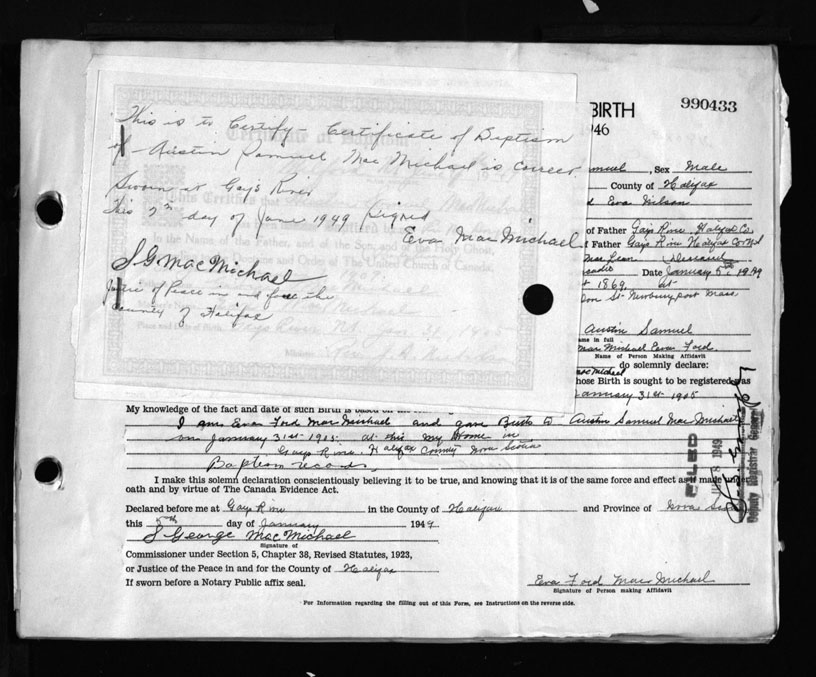 This is to Certify - Certificate of Baptism
of - Austin Samuel Mac Michael is Correct
Sworn at Gays River
This 2nd day of June 1949 Signed
Eva Mac Michael
S G MacMichael
Justice of Peace in and for the
County of Halifax
In the Name of the Father, and of the
and Order of The United Church of Canada,
BIRTH
990433
946
amuel, Sex Male
County of Halifax
Eva Wilson
of Father Gays River Halifax Co.
f Father Gays River Halifax Co N.S
Mac Lean Deceased
Date January 5th 1949
1869, at
St. Newburyport Mass
Austin Samuel
ame in full
Mac Michael Eva Ford
Name of Person Making Affidavit
MacMichael do solemnly declare:
hose Birth is sought to be registered was
January 31st 1905
My knowledge of the fact and date of such Birth is based on the
I am Eva Ford Mac Michael and gave Birth to Austin Samuel Mac Michael
on January 31st 1905. at this my Home in
Gays River, Halifax County Nova Scotia
Baptism records
I make this solemn declaration conscientiously believing it to be true, and knowing that it is of the same force and effect as if made under
oath and by virtue of The Canada Evidence Act.
Declared before me at Gays River in the County of Halifax and Province of Nova Scotia
this 5th day of January 1949
S George MacMichael
Signature of
Commissioner under Section 5, Chapter 38, Revised Statutes, 1923,
or Justice of the Peace in and for the County of Halifax
If sworn before a Notary Public affix seal.
Eva Ford Mac Michael
Signature of Person making Affidavit
For Information regarding the filling out of this Form, see Instructions on the reverse side.
FILED
8 1949
Deputy Registrar General